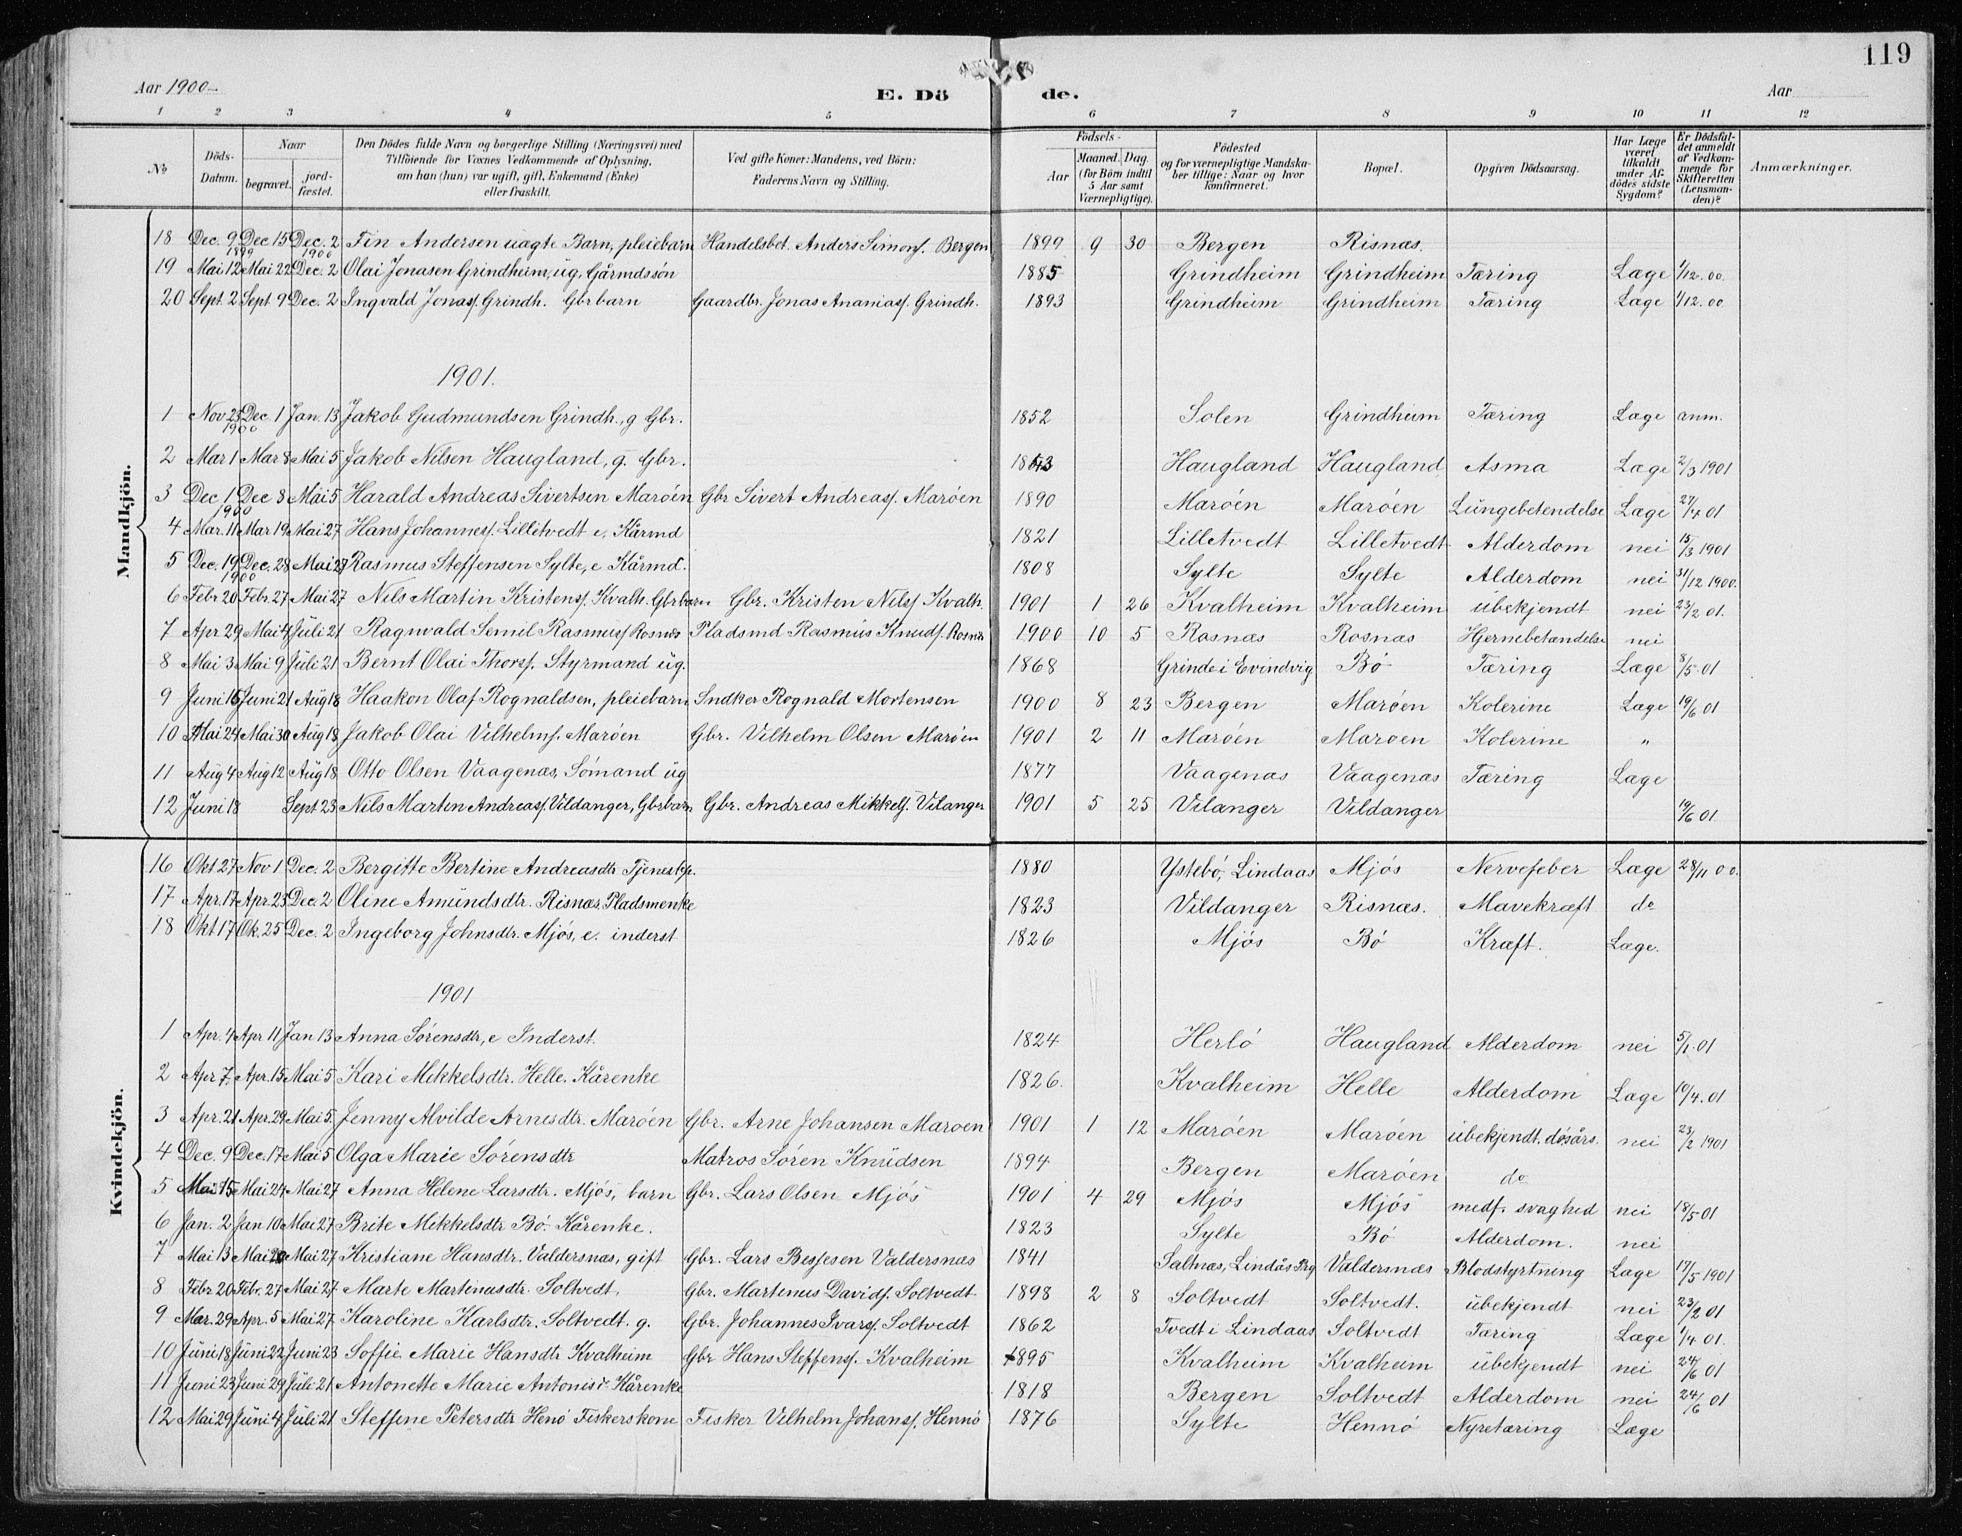 119
Aar 1900- E. Dö de. Aar
1 2 3 4 5 6 7 8 9 10 11 12
No Döds-Datum. Naar begravet. jord-fæstet. Den Dödes fulde Navn og borgerlige Stilling (Næringsvei) med Tilföiende for Voxnes Vedkommende af Oplysning, om han (hun) var ugift, gift, Enkemand (Enke) eller fraskilt. Ved gifte Koner: Mandens, ved Börn: Faderens Navn og Stilling. Födsels- Aar Maaned. Dag. (for Börn indtil 5 Aar samt Værnepligtige). Födested og for værnepligtige Mandska-ber tillige: Naar og hvor konfirmeret. Bopæl. Opgiven Dödsaarsag. Har Læge været tilkaldt under Af-dödes sidste Sygdom? Er Dödsfal-det anmeldt af Vedkom-mende for Skifteretten (Lensman-den)? Anmærkninger.
Mandkjön.
18 Dec. 9 1899 Dec 15 Dec. 2 1900 Fin Andersen uægte Barn, pleiebarn Handelsbet. Anders Simons. Bergen 1899 9 30 Bergen Risnæs.
19 Mai 12 Mai 22 Dec. 2 Olai Jonasen Grindheim, ug. Gårmdssön 1885 Grindheim Grindheim Tæring Læge 1/12.00.
20 Sept. 2 Sept 9 Dec. 2 Ingvald Jonass. Grindh. Gbrbarn Gaardbr. Jonas Ananiass. Grindh. 1893 Grindheim Grindheim Tæring Læge 1/12.00.
1901.
1 Nov 25 1900 Dec. 1 Jan. 13 Jakob Gudmundsen Grindh., g Gbr. 1852 Solen Grindheim Tæring Læge anm.
2 Mar 1 Mar 8 Mai 5 Jakob Nilsen Haugland, g. Gbr. 1843 Haugland Haugland Asma Læge 2/3 1901
3 Dec 1 1900 Dec 8 Mai 5 Harald Andreas Sivertsen Maröen Gbr Sivert Andreass. Maröen 1890 Maröen Maröen Lungebetendelse Læge 27/4 01
4 Mar. 11 Mar 19 Mai 27 Hans Johanness. Lilletvedt e. Kårmd 1821 Lilletvedt Lilletvedt Alderdom nei 15/3 1901
5 Dec. 19 1900 Dec. 28 Mai 27 Rasmus Steffensen Sylte, e Kårmd. 1808 Sylte Sylte Alderdom nei 31/12 1900.
6 Febr 20 Febr. 27 Mai 27 Nils Martin Kristens. Kvalh. Gbrbarn Gbr. Kristen Nilss Kvalh. 1901 1 26 Kvalheim Kvalheim ubekjendt nei 23/2 01.
7 Apr 29 Mai 4 Juli 21 Ragnvald Semil Rasmuss Rosnæs Pladsmd Rasmus Knuds. Rosnæs 1900 10 5 Rosnæs Rosnæs Hjernebetændelse nei
8 Mai 3 Mai 9 Juli 21 Bernt Olai Thorss. Styrmand ug. 1868 Grinde i Evindvig Bö Tæring Læge 8/5.01
9 Juni 15 Juni 21 Aug 18 Haakon Olaf Rognaldsen, pleiebarn Sndker Rognald Mortensen 1900 8 23 Bergen Maröen Kolerine Læge 19/6 01
10 Mai 24 Mai 30 Aug 18 Jakob Olai Vilhelms. Maröen Gbr. Vilhelm Olsen Maröen 1901 2 11 Maröen Maroen Kolerine "
11 Aug 4 Aug 12 Aug 18 Otto Olsen Vaagenæs, Sömand ug 1877 Vaagenas Vaagenæs Tæring Læge
12 Juni 18 Sept 23 Nils Marten Andreass. Vildanger, Gbrbarn Gbr. Andreas Mikkels. Vilanger 1901 5 25 Vilanger Vildanger 19/6 01.
Kvindekjön.
16 Okt 27 Nov 1 Dec. 2 Bergitte Bertine Andreasdtr Tjenestp. 1880 Ystebö, Lindaas Mjös Nervefeber Læge 28/11 00.
17 Apr. 17 Apr. 23 Dec. 2 Oline Amundsdtr. Risnæs Pladsmenke 1823 Vildanger Risnæs. Mavekræft do
18 Okt 17 Ok. 25 Dec. 2 Ingeborg Johnsdtr. Mjös, e. inderst 1826 Mjös Bö Kræft. Læge.
1901
1 Apr. 4 Apr 11 Jan 13 Anna Sörensdtr, e Inderst. 1824 Herlö Haugland Alderdom nei 5/1.01
2 Apr 7. Apr. 15 Mai 5 Kari Mikkelsdtr. Helle. Kårenke 1826. Kvalheim Helle Alderdom Læge 10/4.01
3 Apr. 21 Apr. 29 Mai 5. Jenny Alvilde Arnesdtr. Maröen Gbr. Arne Johansen Maroen 1901 1 12 Maröen Maröen ubekjendt. dösårs. nei 23/2 1901
4 Dec. 9 Dec. 17 Mai 5 Olga Marie Sörensdtr Matros Sören Knudsen 1894 Bergen Maröen do
5 Mai 15 Mai 24 Mai 27 Anna Helene Larsdtr. Mjös, barn Gbr. Lars Olsen Mjös 1901 4 29 Mjös Mjös medf. svaghed nei 18/5 01
6 Jan. 2 Jan 10 Mai 27 Brite Mikkelsdtr Bö. Kårenke. 1823 Sylte Bö Alderdom. nei
7 Mai 13 Mai 20 Mai 27 Kristiane Hansdtr. Valdersnæs, gift Gbr. Lars Besjesen Valdersnæs 1841 Saltnæs, Lindås Prg Valdersnæs Blodstyrtning Læge 17/5 1901
8 Febr 20 Febr. 27 Mai 27. Marte Martinusdtr. Soltvedt, Gbr. Martinus Davids. Soltvedt 1898 2 8 Soltvedt Soltvedt. ubekjendt nei 23/2 01
9 Mar. 29 Apr. 5 Mai 27 Karoline Karlsdtr. Soltvedt. g. Gbr. Johannes Ivars. Soltvedt 1862 Tvedt i Lindaas Soltvedt Tæring Læge 1/4 01.
10 Juni 18 Juni 22 Juni 23 Soffie Marie Hansdtr Kvalheim Gbr Hans Steffens. Kvalheim 1895 Kvalheim Kvalheim ubekjendt nei 24/6 01
11 Juni 23 Juni 29 Juli 21 Antonette Marie Antonisd. Kårenke 1818 Bergen Soltvedt Alderdom nei 24/6 01
12 Mai 29 Juni 4 Juli 21 Steffine Petersdtr Henö Fiskerskone Fisker Vilhelm Johans. Hennö 1876 Sylte Hennö Nyretæring Læge